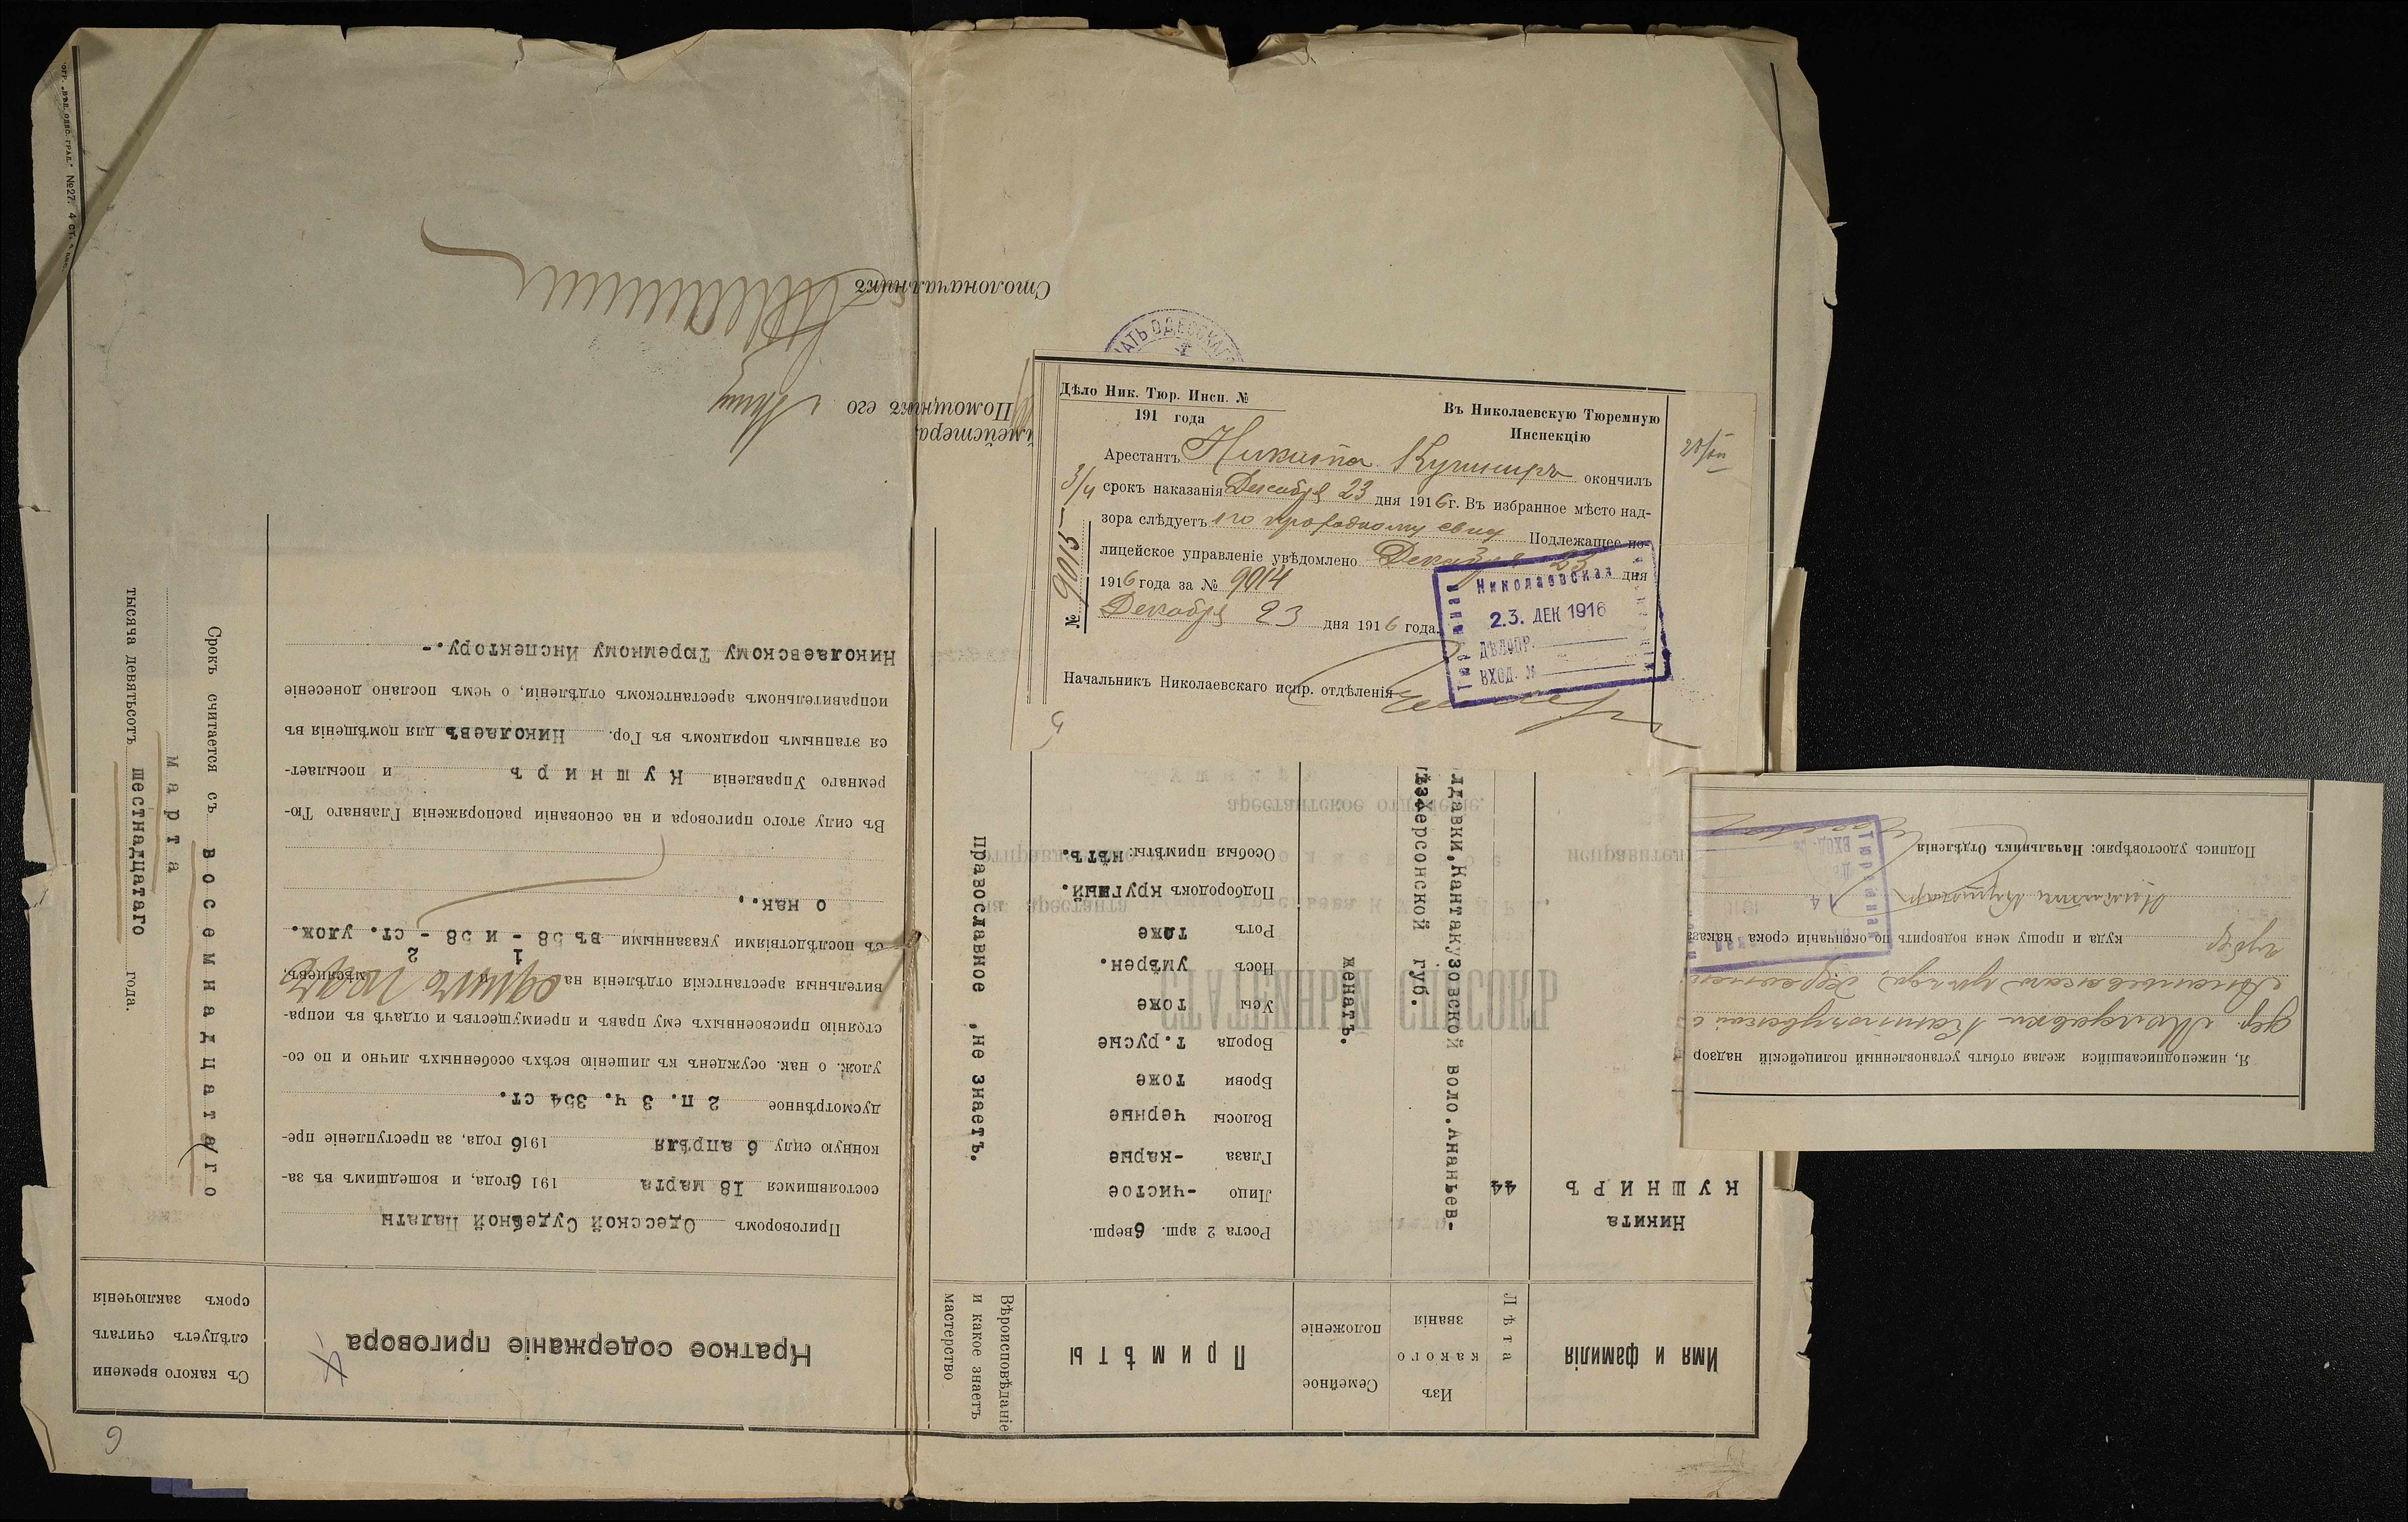 Имя и фамилія
Никита
КУШНИРЪ
Лѣта
44
Изъ
какого
званія
лдавки,Кантакузовской воло.Ананьев-
Херсонской губ.
Семейное
положеніе
женатъ.
Примѣты
Роста 2 арш. 6верш.
Лицо -чистое
Глаза -карые
Волосы черные
Брови тоже
Борода т.русые
Усы тоже
Носъ умѣрен.
Ротъ тоже
Подбородокъ круглый.
Особыя примѣты: нѣтъ.
Вѣроисповѣданіе
и какое знаетъ
мастерство
православное ,не знаетъ.
Краткое содержаніе приговора
Приговоромъ Одесской Судебной Палаты
состоявшимся 18 марта 1916года, и вошедшимъ въ за-
конную силу 6 апрѣля 1916 года, за преступленіе пре-
дусмотрѣнное 2 п. 3 ч. 354 ст.
улож. о нак. осужденъ къ лишенію всѣхъ особенныхъ лично и по со-
стоянію присвоенныхъ ему правъ и преимуществъ и отдачѣ въ испра-
вительныя арестантскія отдѣленія на одинъ годъ мѣсяцевъ,
съ послѣдствіями указанными въ 58 - 1 и 58 - 2 ст. улож.
о нак.,
Въ силу этого приговора и на основаніи распоряженія Главнаго Тю-
ремнаго Управленія Кушниръ и посылает-
ся этапнымъ порядкомъ въ Гор. Николаевъ для помѣщенія въ
исправительномъ арестантскомъ отдѣленіи, о чемъ послано донесеніе
Николаевскому Тюремному Инспектору.-
Съ какого времени
слѣдуетъ считать
срокъ заключенія
Срокъ считается съ восемнадцатаго
марта
тысяча девятьсотъ шестнадцатаго года.
ймейстера,
Помощникъ его
Столоначальникъ
АТЬ ОДЕССКАГ
№27. 4 ст.
6
Дѣло Ник. Тюр. Инсп. №
191 года
Въ Николаевскую Тюремную
Инспекцію
Арестантъ Никита Кушниръ окончилъ
срокъ наказанія Декабря 23 дня 1916г. Въ избранное мѣсто над-
зора слѣдуетъ по проходному свид Подлежащее по-
лицейское управленіе увѣдомлено Декабря 23 дня
1916 года за № 9014
Декабря 23 дня 1916 года.
Начальникъ Николаевскаго испр. отдѣленія
№ 9015
3/4
Николаевская
23. ДЕК 1916
ДѢЛОПР.
ВХОД. №
Я, нижеподписавшійся желая отбыть установленный полицейскій надзор
дер. Молдавки Кантакузовской
Ананьевскаго уѣзда, Херсонской
губер куда и прошу меня водворить по окончаніи срока наказ
Никита Кушнир
Подпись удостовѣряю: Начальникъ Отдѣленія